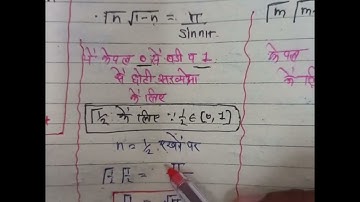 · Γn Γ1-n = π / sin nπ
ये केवल 0 से बड़ी व 1
से छोटी संख्याओं
के लिए
Γ½ के लिए ∵ ½ ∈ (0, 1)
n = ½ रखने पर
Γ½ Γ½ = π
Γm Γm
केवल
के लि